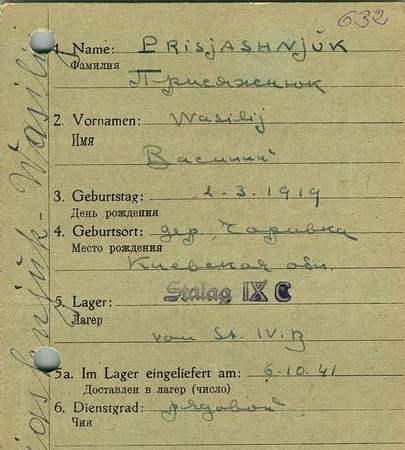 632
1. Name: PRISJASHNJUK
Фамилия
Присяжнюк
2. Vornamen: Wasilij
Имя
Василий
3. Geburtstag: 2.3.1919
День рождения
4. Geburtsort: дер. Чаривка
Место рождения
Киевская обл.
5. Lager: Stalag IX C
Лагер
vom St. IV. B
5a. Im Lager eingeliefert am: 6.10.41
Доставлен в лагер (число)
6. Dienstgrad: рядовой
Чин
jashnjuk-Wasilij